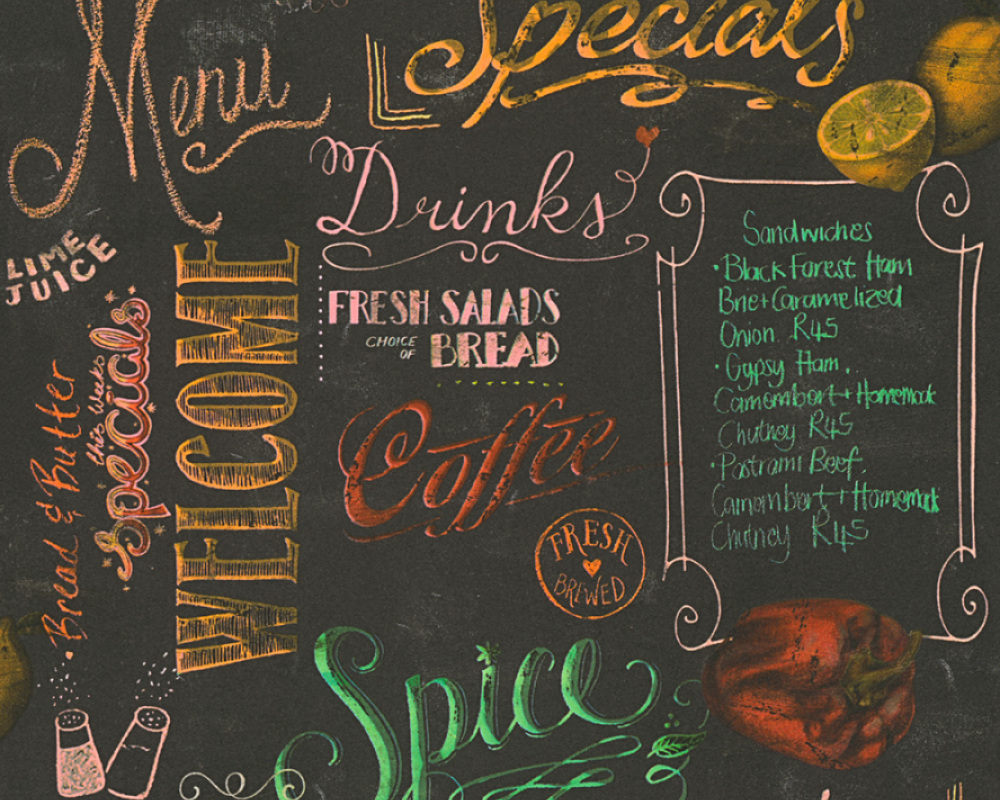 Menu
Specials
Drinks
LIME
JUICE
WELCOME
this weeks
specials
•Bread & Butter
FRESH SALADS
CHOICE
OF
BREAD
Coffee
FRESH
BREWED
Sandwiches
•Black Forest Ham
Brie+Caramelized
Onion R45
•Gypsy Ham.
Camembert+Homemade
Chutney R45
•Pastrami Beef.
Camembert+Homemade
Chutney R45
Spice